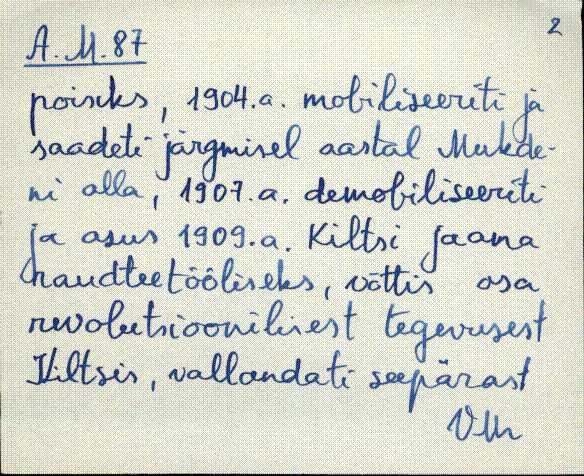 2
A.M.87
poiseks, 1904.a. mobiliseeriti ja
saadeti järgmisel aastal Mukde-
ni alla, 1907.a. demobiliseeriti
ja asus 1909.a. Kiltsi jaama
raudteetööliseks, võttis osa
revolutsioonilisest tegevusest
Kiltsis, vallandati seepärast